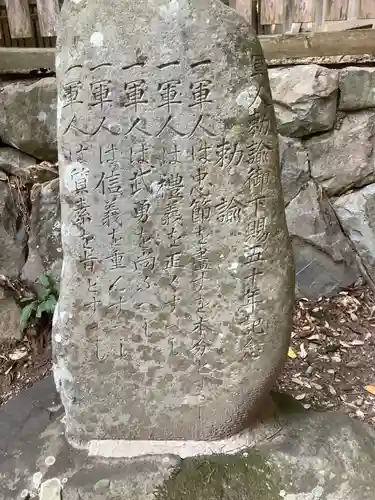 軍人勅諭御下賜五十年記念
勅諭
一軍人は忠節を盡すを本分とすへし
一軍人は禮義を正くすへし
一軍人は武勇を尚ふへし
一軍人は信義を重んすへし
一軍人は質素を旨とすへし